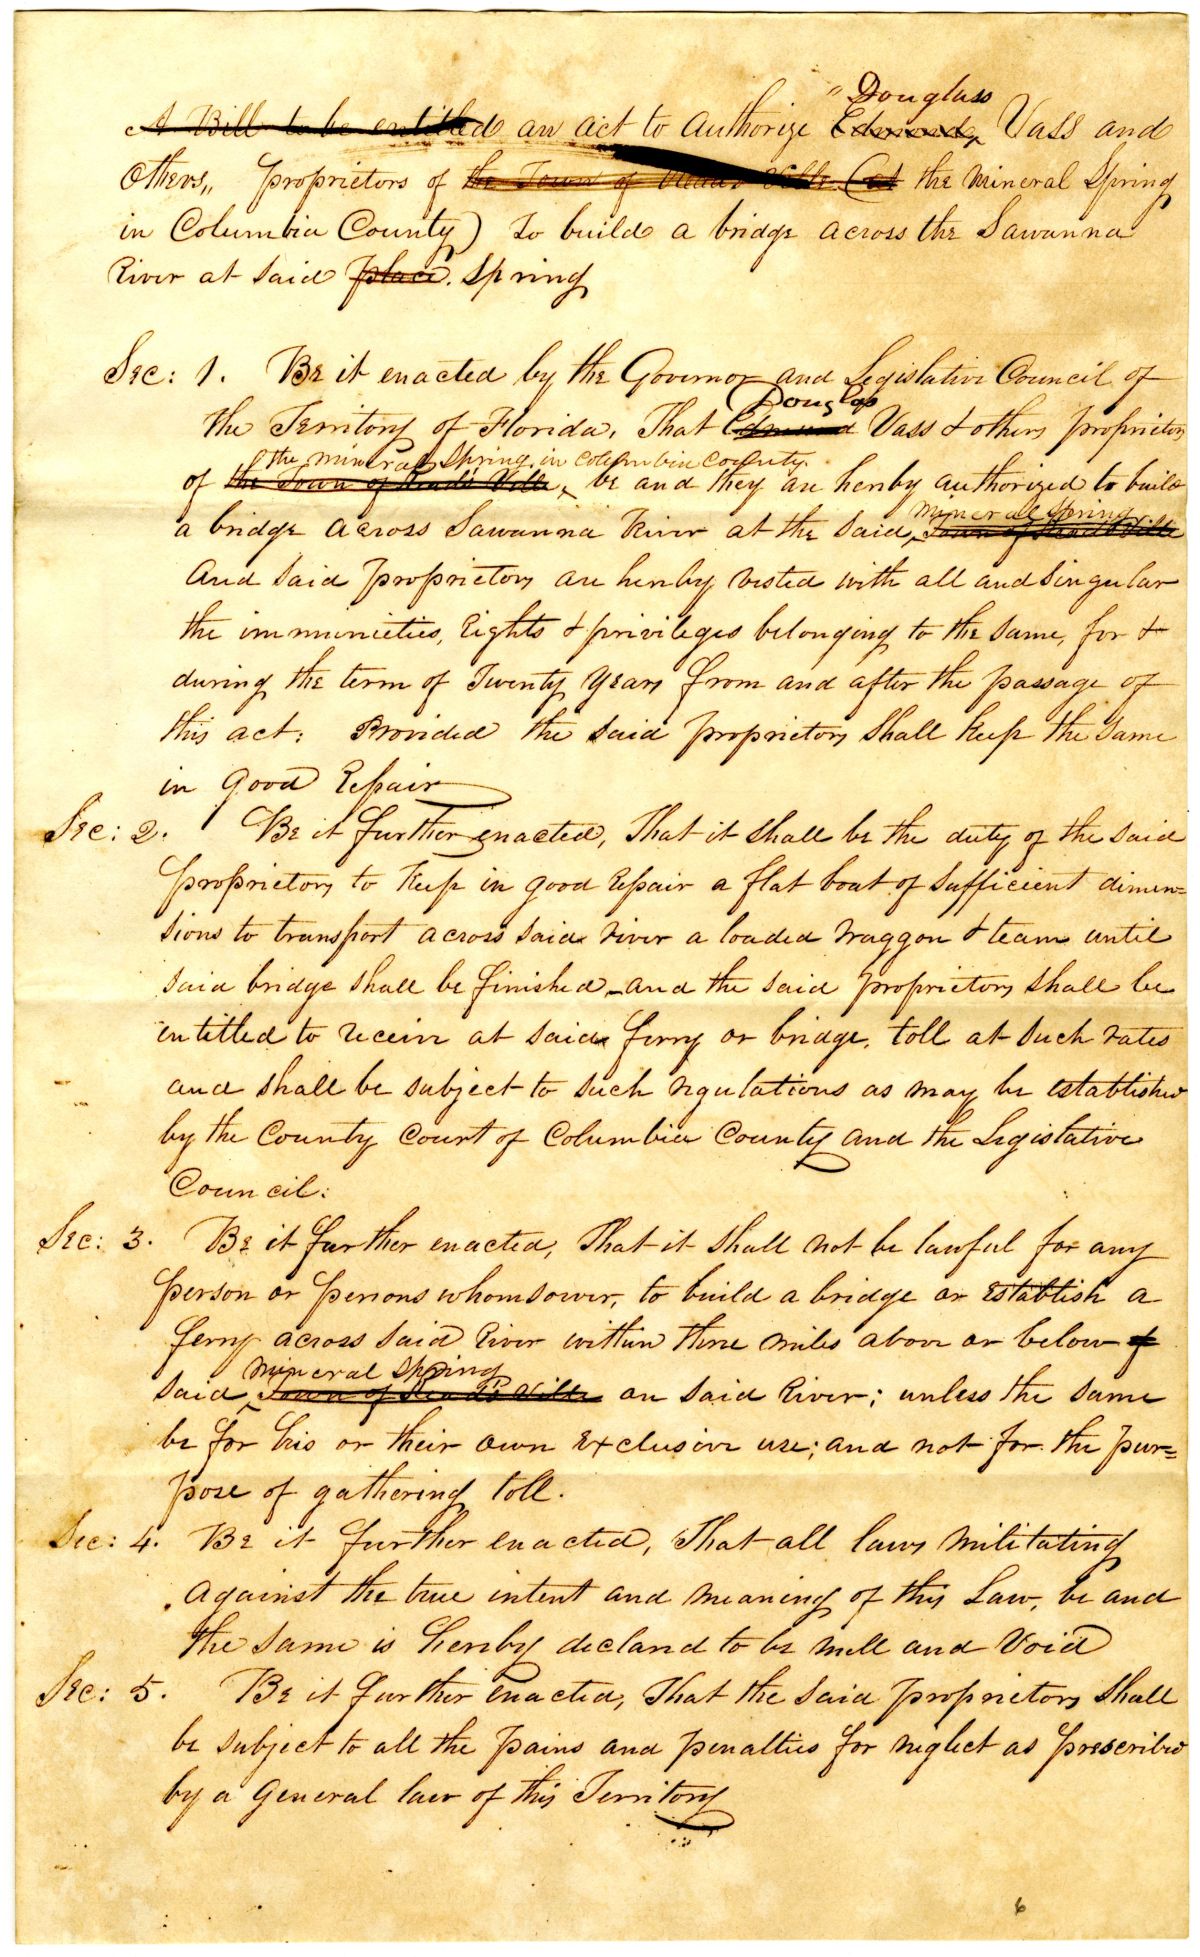 A Bill to be entitled an act to authorize Edmund Douglass Vass and
others, proprietors of the Town of Reads Ville (at the mineral Spring
in Columbia County) to build a bridge across the Suwanna
River at said place. Spring
Sec: 1. Be it enacted by the Governor and Legislative Council of
the Territory of Florida, That Edmund Douglass Vass & others proprietors
the mineral Spring in Columbia County.
of the Town of Reads Ville, be and they are hereby authorized to build
mineral Spring
a bridge across Suwanna River at the said Town of Reads Ville
And said proprietors are hereby vested with all and singular
the immunieties, Rights & privileges belonging to the same, for &
during the term of Twenty Years from and after the passage of
this act: Provided the said proprietors shall keep the same
in good Repair
Sec: 2. Be it further enacted, That it shall be the duty of the said
proprietors to keep in good repair a flat boat of sufficient dimen=
sions to transport across said river a loaded waggon & team until
said bridge shall be finished - and the said proprietors shall be
entitled to receive at said ferry or bridge, toll at such rates
and shall be subject to such regulations as may be established
by the County Court of Columbia County and the Legislative
Council:
Sec: 3. Be it further enacted, That it shall not be lawful for any
person or persons whomsoever, to build a bridge or establish a
ferry across said River within three miles above or below
mineral Spring
said Town of Reads Ville on said River; unless the same
be for his or their own exclusive use; and not for the pur=
pose of gathering toll.
Sec: 4. Be it further enacted, That all laws militating
against the true intent and meaning of this Law, be and
the same is hereby declared to be null and Void
Sec: 5. Be it further enacted, That the said proprietors shall
be subject to all the pains and penalties for neglect as prescribed
by a General law of this Territory
6